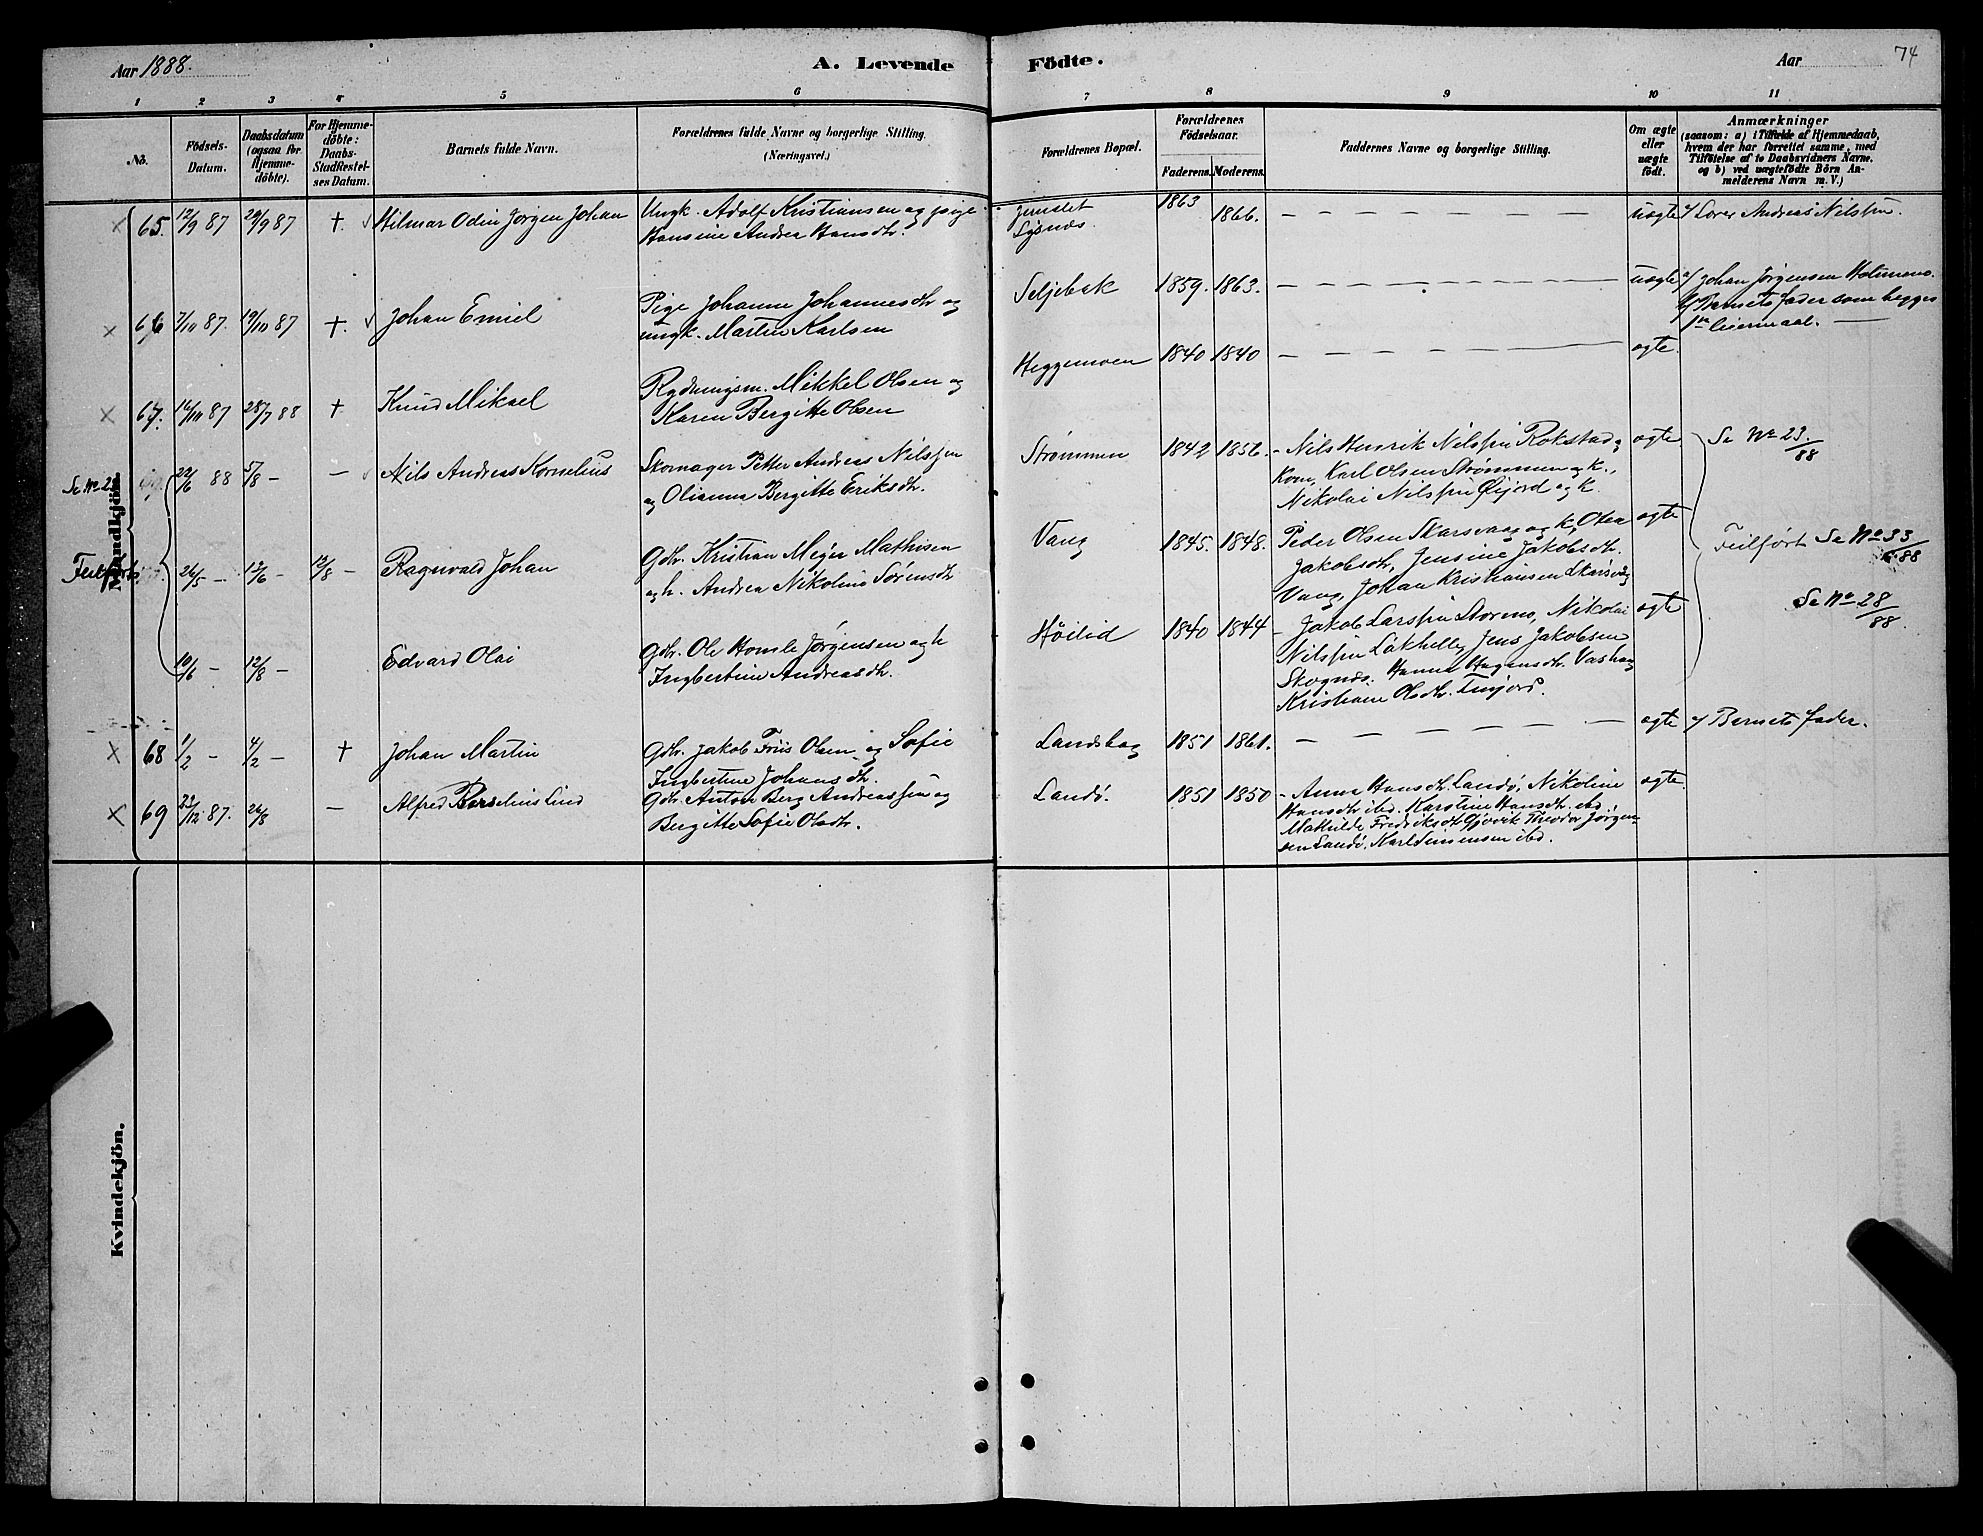 Aar 1888.
A. Levende
Födte.
Aar
74
1 2 3 4 5 6 7 8 9 10 11
No.
Födsels-
Datum.
Daabsdatum
(ogsaa for
Hjemme-
döbte).
For Hjemme-
döbte:
Daabs-
Stadfæstel-
ses Datum.
Barnets fulde Navn.
Forældrenes fulde Navne og borgerlige Stilling.
(Næringsvei.)
Forældrenes Bopæl.
Forældrenes
Födselsaar.
Faderens. Moderens.
Faddernes Navne og borgerlige Stilling.
Om ægte
eller
uægte
födt.
Anmærkninger
(saasom: a) i Tilfælde af Hjemmedaab,
hvem der har forrettet samme, med
Tilföielse af to Daabsvidners Navne,
og b) ved uægtefödte Börn An-
melderens Navn m. V.)
Mandkjön.
65. 12/9 87 29/9 87 +. Hilmar Odin Jørgen Johan
Ungk. Adolf Kristiansen og pige
Hansine Andrea Hansdtr.
Lysnæs.
1863 1866. uægte Andreas Nilssen.
66 7/10 87. 19/10 87 +. Johan Emiel
Pige Johanne Johannesdtr og
ungk. Martin Karlsen
Seljebak 1859. 1863. uægte
Johan Jörgensen
Barnets fader som begges
1ste leiermaal.
67. 16/10 87 28/7 88 + Knud Mikael
Rydningsm. Mikkel Olsen og
Karen Bergitte Olsen
Heggemoen 1840 1840 ægte.
Se No 23 22/6 88 5/8 - - Nils Andreas Kornelius
Skomager Petter Andreas Nilssen
og Olianna Bergitte Eriksdtr.
Strømmen 1842 1856.
Nils Henrik Nilssen Rokstad og
Kone, Karl Olsen Strømmen og k.,
Nikolai Nilssen Øijord og k.
ægte Se No 23./88
Feilført 26/5 - 12/6 - 12/8 - Ragnvald Johan
Gdbr. Kristian Mejer Mathisen
og h. Andrea Nikoline Sørensdtr
Vang 1845. 1848.
Peder Olsen Skarsvaag og k, Olea
Jakobsdtr, Jensine Jakobsdtr.
Vang, Johan Kristiansen Skarsvåg
ægte Feilført Se No 33/88
10/6 - 12/8 - Edvard Olai
Gdbr. Ole Homle Jørgensen og h
Ingbertine Andreasdtr.
Høilid 1840 1844
Jakob Larssen Storenes, Nikolai
Nilssen Lakhella, Jens Jakobsen
Skognæs. Hanna Hagensdtr. Vashaug
Kristiane Olsdtr. Finjord.
ægte Se No 28/88.
68 1/2 - 4/2 - + Johan Martin
Gdbr. Jakob Friis Olsen og Sofie
Ingbertine Johansdtr.
Landskag 1851 1861. ægte Bernets fader.
69 23/12 87. 26/8 - Alfred Berselius Lind
Gdbr. Anton Berg Andreassen og
Bergitte Sofie Olsdtr.
Landø. 1851 1850
Anna Hansdtr. Landø, Nikoline
Hansdtr ibd. Karstine Hansdtr. ibd.
Mathilde Fredriksdtr Gjøvik Theodor Jørgen-
sen Landø. Karl Jensensen ibd.
ægte
Kvindekjön.